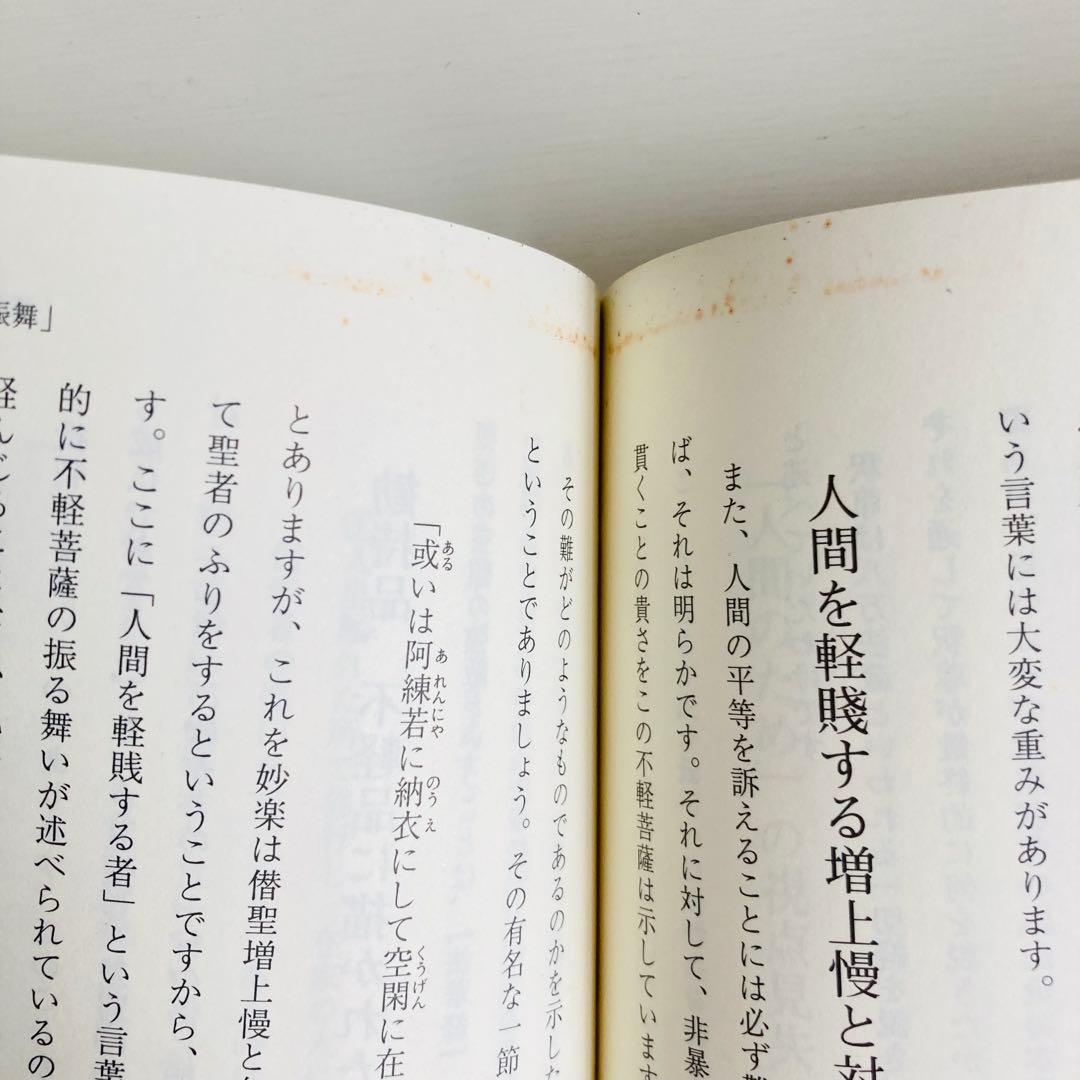 いう言葉には大変な重みがあります。
人間を軽賤する増上慢と対
また、人間の平等を訴えることには必ず難
ば、それは明らかです。それに対して、非暴
貫くことの貴さをこの不軽菩薩は示しています
その難がどのようなものであるのかを示した
ということでありましょう。その有名な一節
「或いは阿練若に納衣にして空閑に在
ある あれんにゃ のうえ くうげん
とありますが、これを妙楽は僭聖増上慢と
て聖者のふりをするということですから、
す。ここに「人間を軽賎する者」という言葉
的に不軽菩薩の振る舞いが述べられているの
振舞」